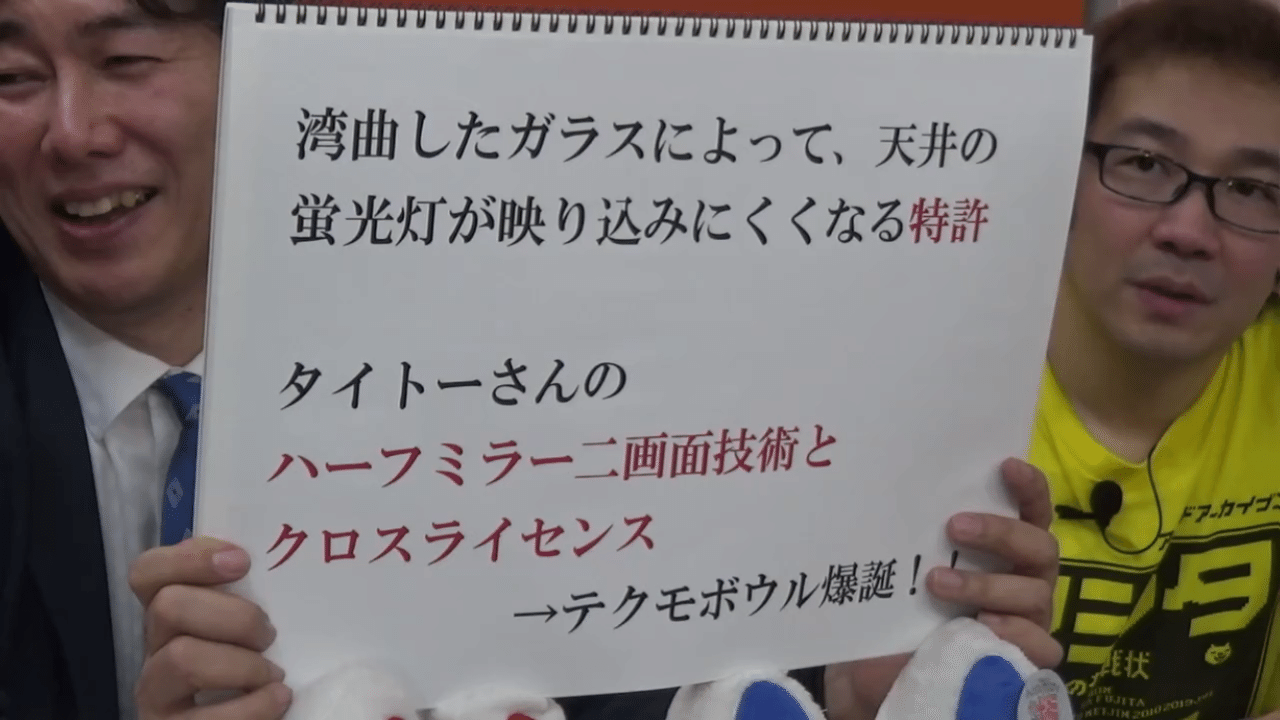 湾曲したガラスによって、天井の
蛍光灯が映り込みにくくなる特許
タイトーさんの
ハーフミラー二画面技術と
クロスライセンス
→テクモボウル爆誕！！
ドアーカイブ
戦状
UJITA
2010 2019